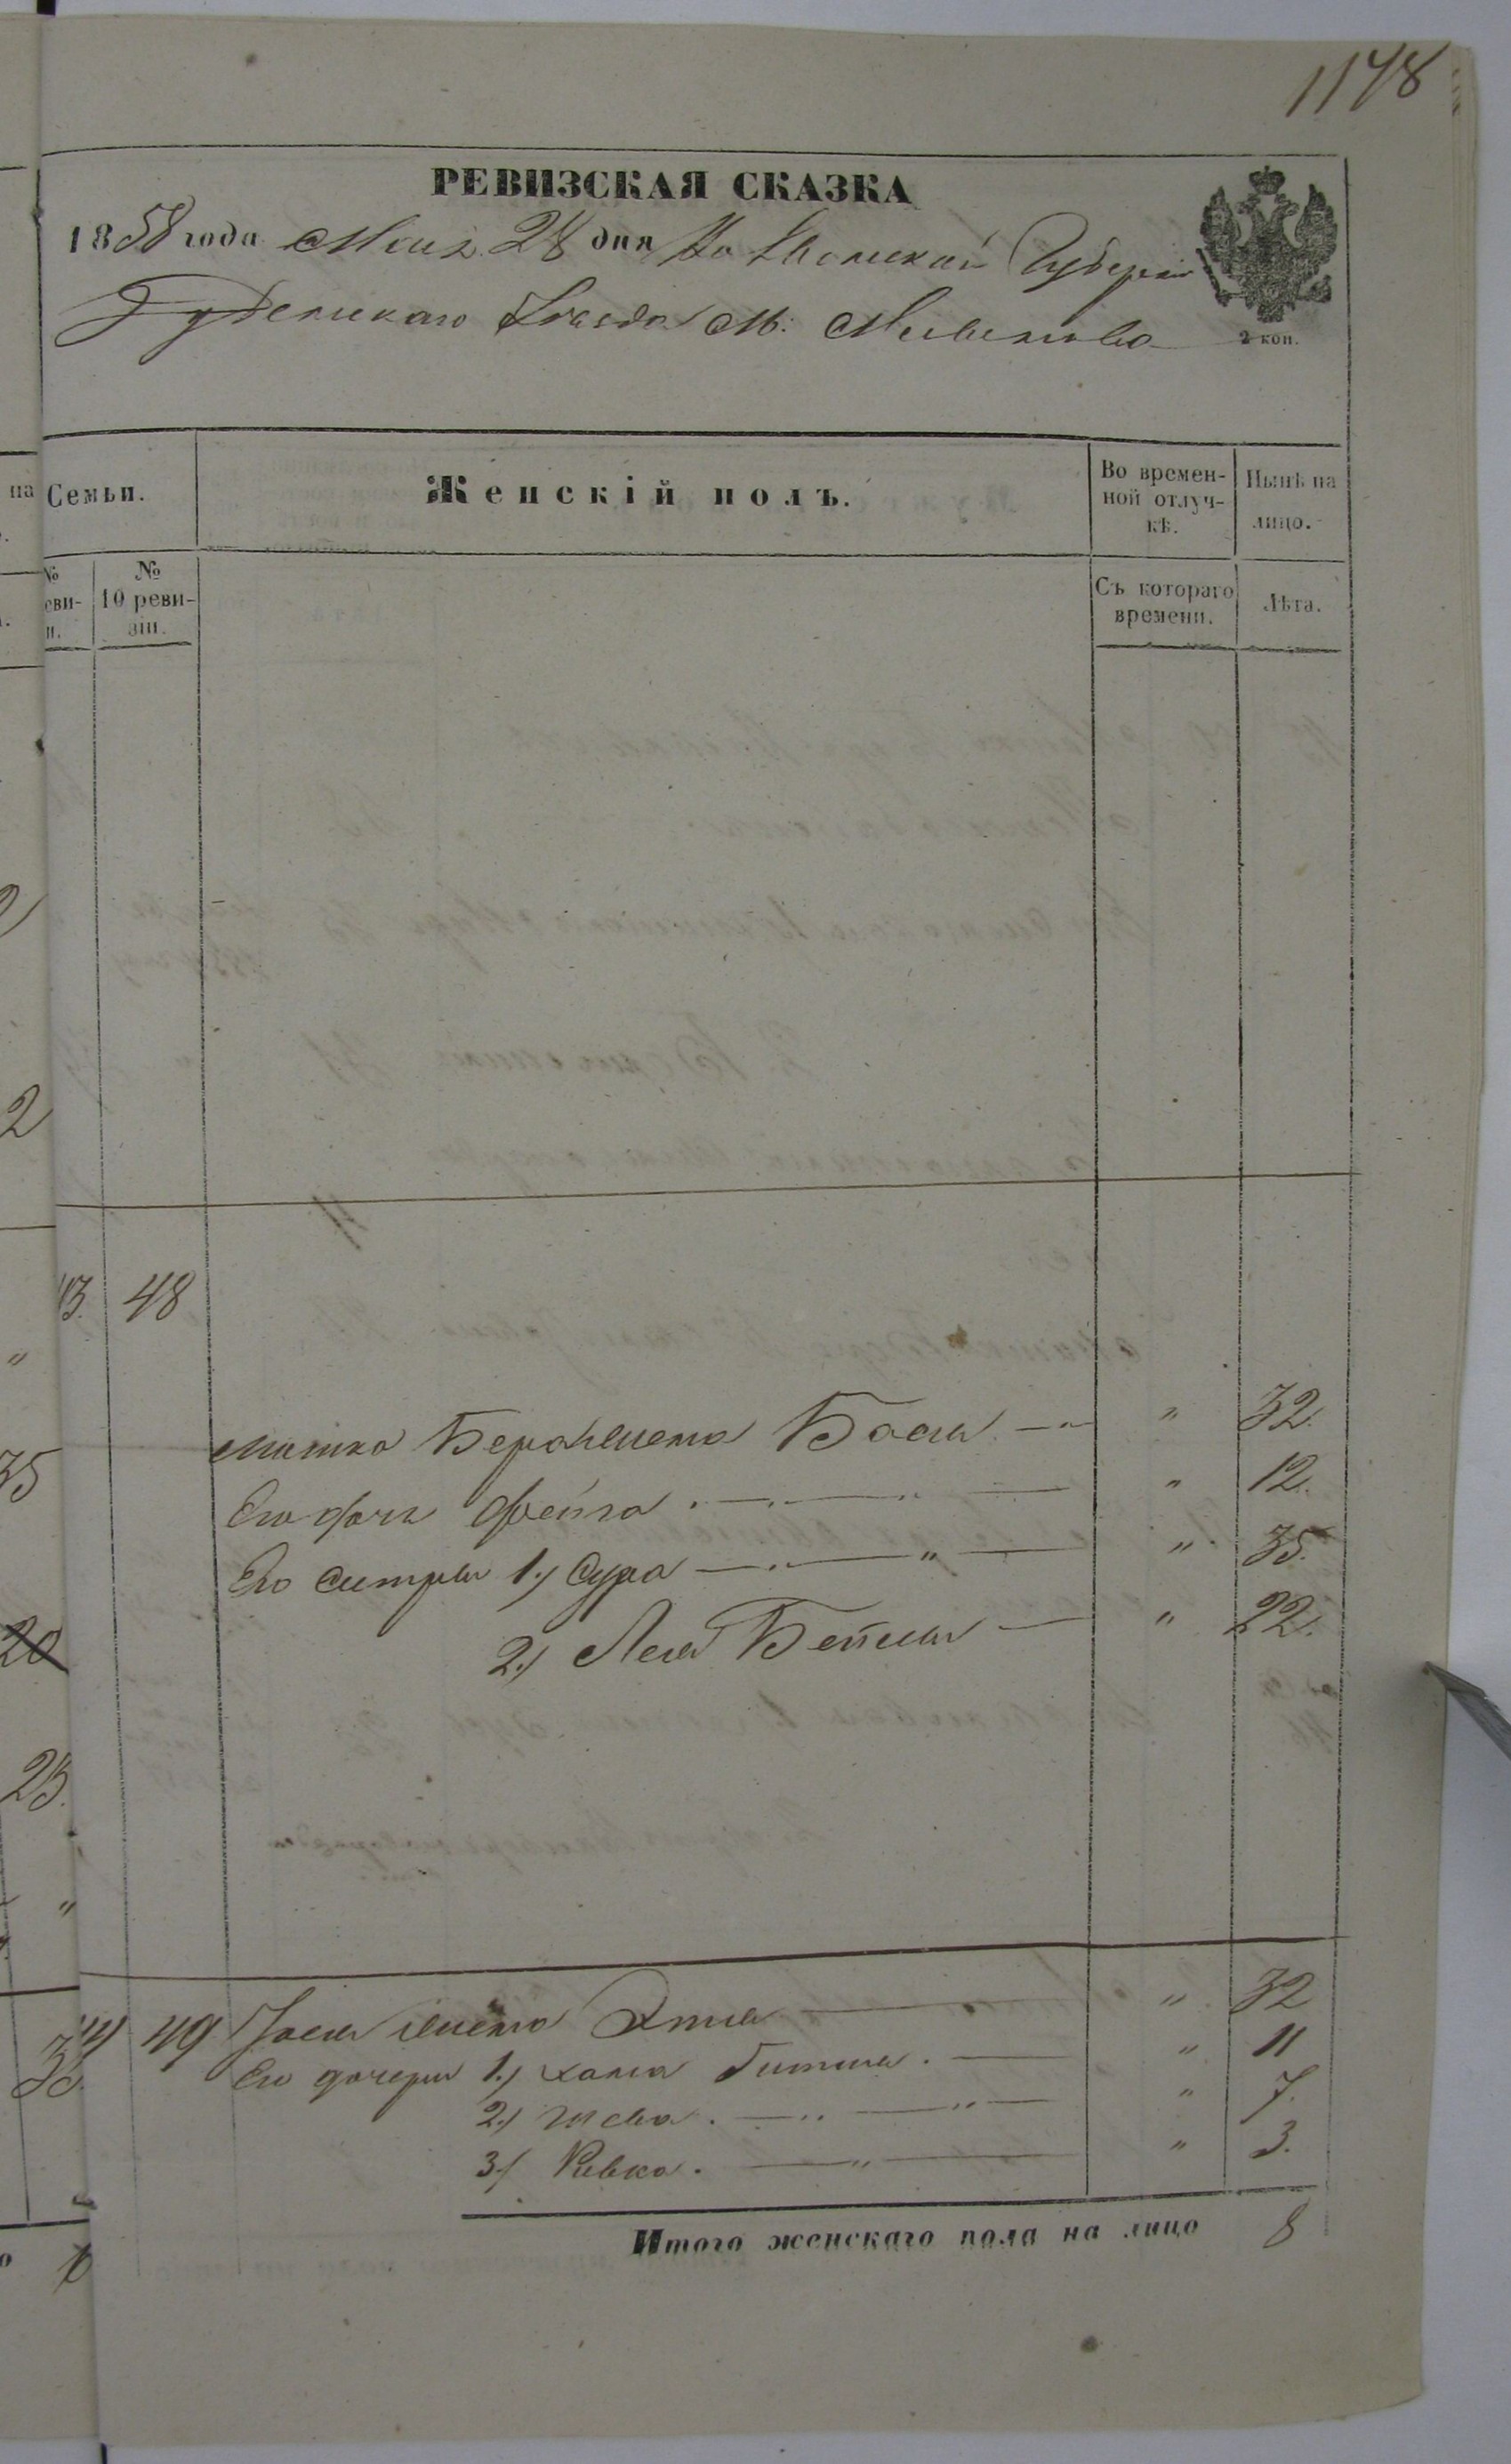 1178
РЕВИЗСКАЯ СКАЗКА
1858 года Мая 28 дня Волынской Губернии
Дубенскаго Уезда М.
2 коп.
на Семьи.
Женскій полъ.
Во времен-
ной отлуч-
кѣ.
Нынѣ на
лицо.
№
еви-
и.
№
10 реви-
зіи.
Съ котораго
времени.
Лѣта.
2
2
13. 48
"
35
Берка жена Бася " 32.
Его дочь Фейга " 12.
Его сестры 1.) Сура " 35.
2.) Лея Бейла " 22.
20
23.
"
44 49 Іося жена Этля " 32
Его дочери 1.) Хана Гитля. " 11
2.) " 7.
3.) Ривка. " 3.
Итого женскаго пола на лицо 8